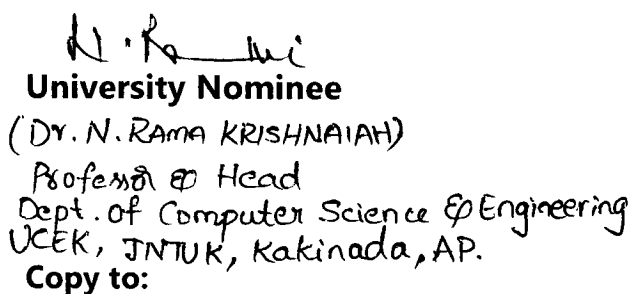 N. Ra
University Nominee
(Dr. N. RAMA KRISHNAIAH)
Professor & Head
Dept. of Computer Science & Engineering
UCEK, JNTUK, Kakinada, AP.
Copy to: